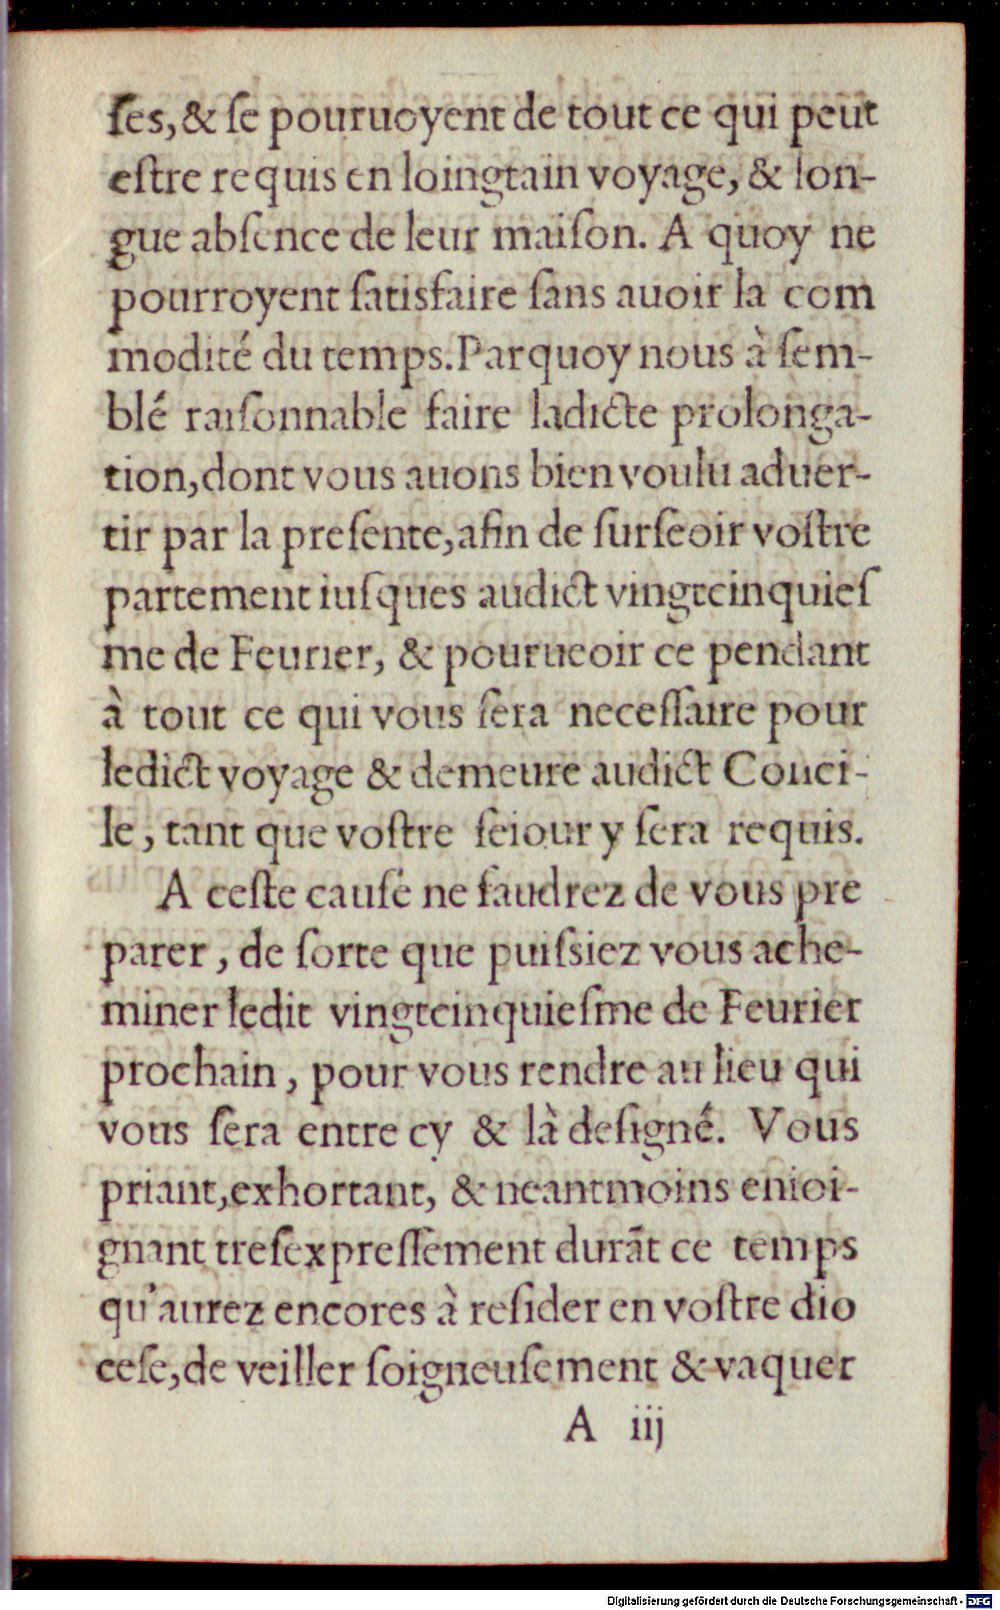 ſes, & ſe pouruoyent de tout ce qui peut
eſtre requis en loingtain voyage, & lon-
gue abſence de leur maiſon. A quoy ne
pourroyent ſatisfaire ſans auoir la com
modité du temps. Parquoy nous à ſem-
blé raiſonnable faire ladicte prolonga-
tion, dont vous auons bien voulu aduer-
tir par la preſente, afin de ſurſeoir voſtre
partement iuſques audict vingtcinquieſ
me de Feurier, & pourueoir ce pendant
à tout ce qui vous ſera neceſſaire pour
ledict voyage & demeure audict Conci-
le, tant que voſtre ſeiour y ſera requis.
A ceſte cauſe ne faudrez de vous pre
parer, de ſorte que puiſsiez vous ache-
miner ledit vingtcinquieſme de Feurier
prochain, pour vous rendre au lieu qui
vous ſera entre cy & là deſigné. Vous
priant, exhortant, & neantmoins enioi-
gnant treſexpreſſement durãt ce temps
qu'aurez encores à reſider en voſtre dio
ceſe, de veiller ſoigneuſement & vaquer
A iij
Digitalisierung gefördert durch die Deutsche Forschungsgemeinschaft - DFG